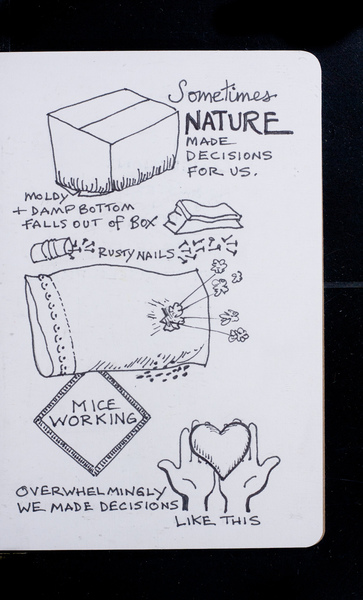 Sometimes
NATURE
MADE
DECISIONS
FOR US.
MOLDY
+ DAMP BOTTOM
FALLS OUT OF BOX
RUSTY NAILS
MICE
WORKING
OVERWHELMINGLY
WE MADE DECISIONS
LIKE THIS